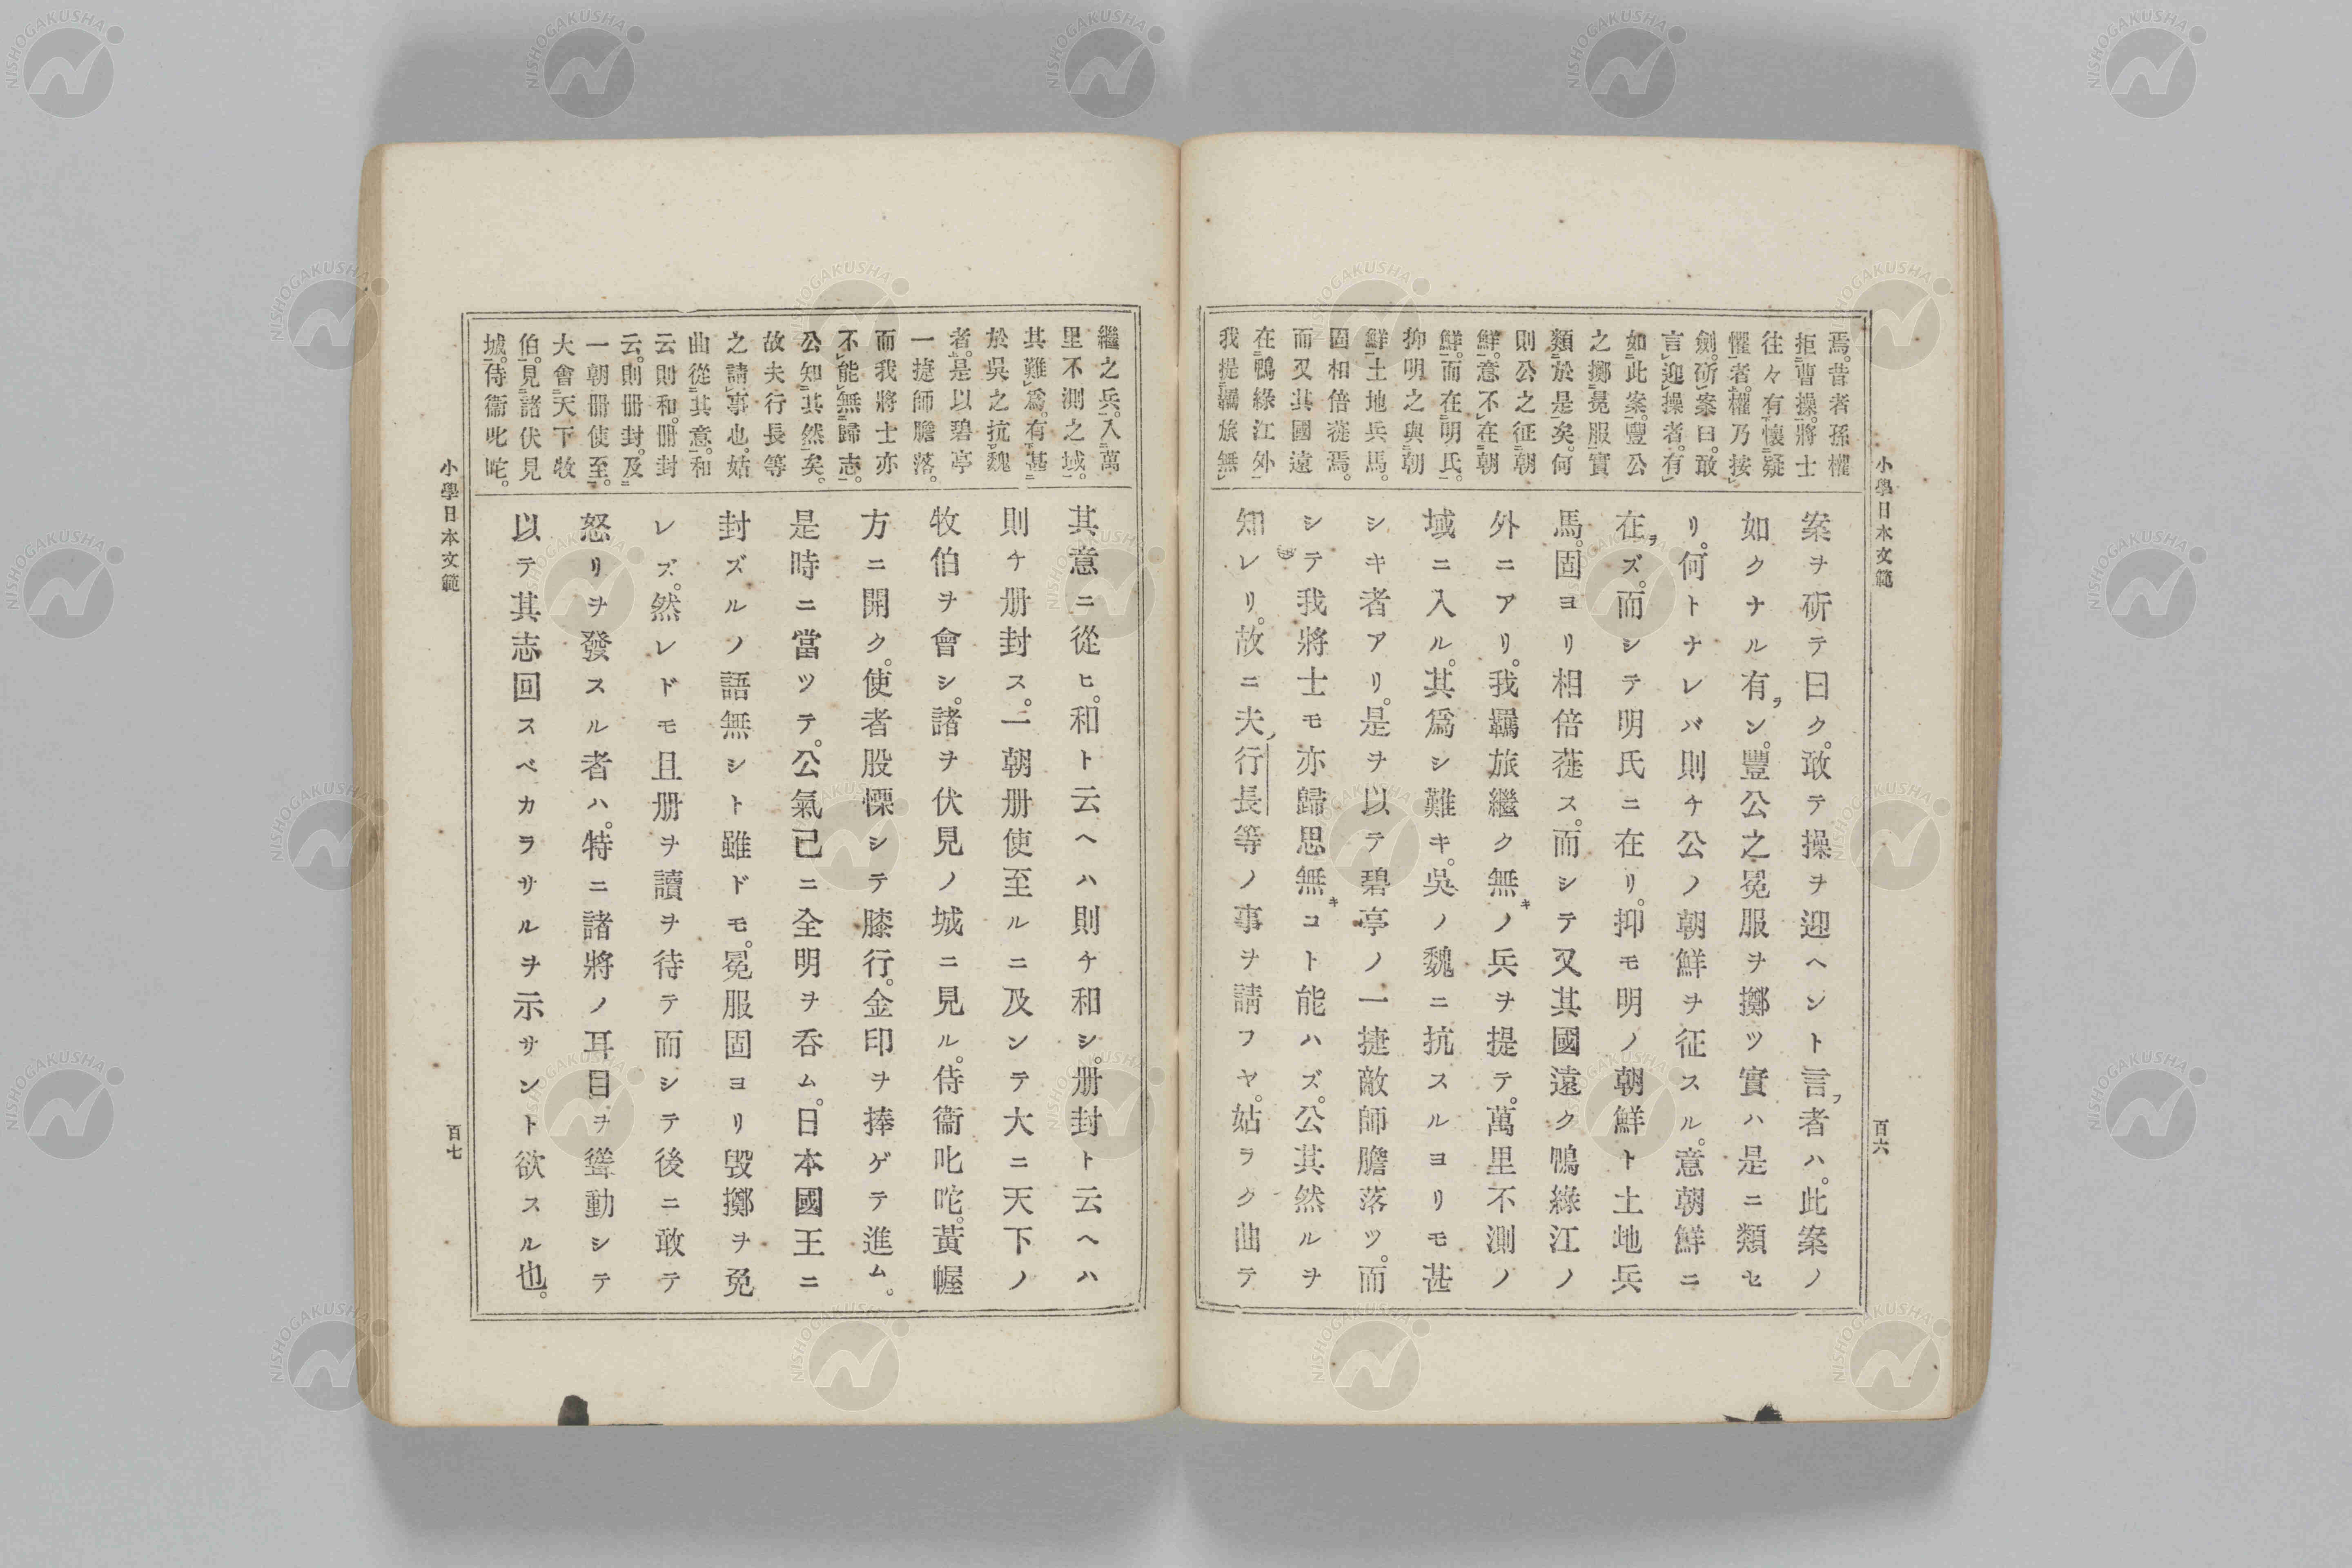 小學日本文範
百六
焉。昔者孫權
拒曹操。將士
往々有懷疑
懼者。權乃按
劍。斫案曰。敢
言迎操者。有
如此案。豐公
之擲冕服實
類於是矣。何
則公之征朝
鮮。意不在朝
鮮。而在明氏。
抑明之與朝
鮮土地兵馬。
固相倍蓰焉。
而又其國遠
在鴨綠江外
我提羈旅無
案ヲ斫テ曰ク。敢テ操ヲ迎ヘント言フ者ハ。此案ノ
如クナル有ラン。豐公之冕服ヲ擲ツ實ハ是ニ類セ
リ。何トナレバ則チ公ノ朝鮮ヲ征スル。意朝鮮ニ
在ラズ。而シテ明氏ニ在リ。抑モ明ノ朝鮮ト土地兵
馬。固ヨリ相倍蓰ス。而シテ又其國遠ク鴨綠江ノ
外ニアリ。我羈旅繼ク無キノ兵ヲ提テ。萬里不測ノ
域ニ入ル。其爲シ難キ。吳ノ魏ニ抗スルヨリモ甚
シキ者アリ。是ヲ以テ碧亭ノ一捷敵師膽落ツ。而
シテ我將士モ亦歸思無キコト能ハズ。公其然ルヲ
知レリ。故ニ夫ノ行長等ノ事ヲ請フヤ。姑ラク曲テ
繼之兵。入萬
里不測之域。
其難爲。有甚
於吳之抗魏
者。是以碧亭
一捷師膽落。
而我將士亦
不能無歸志。
公知其然矣。
故夫行長等
之請事也。姑
曲從其意。和
云則和。册封
云。則册封。及
一朝册使至。
大會天下牧
伯。見諸伏見
城。侍衞叱咤。
其意ニ從ヒ。和ト云ヘハ則チ和シ。册封ト云ヘハ
則チ册封ス。一朝册使至ルニ及ンテ大ニ天下ノ
牧伯ヲ會シ。諸ヲ伏見ノ城ニ見ル。侍衞叱咤。黃幄
方ニ開ク。使者股慄シテ膝行。金印ヲ捧ゲテ進ム。
是時ニ當ツテ。公氣已ニ全明ヲ呑ム。日本國王ニ
封ズルノ語無シト雖ドモ。冕服固ヨリ毀擲ヲ免
レズ。然レドモ且册ヲ讀ヲ待テ而シテ後ニ敢テ
怒リヲ發スル者ハ。特ニ諸將ノ耳目ヲ聳動シテ
以テ其志回スベカラサルヲ示サント欲スル也。
小學日本文範
百七
NISHOGAKUSHA